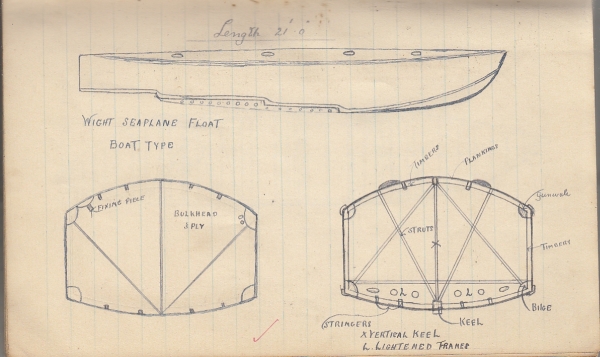 Length 21' 0"
WIGHT SEAPLANE FLOAT
BOAT TYPE
FIXING PIECE
BULKHEAD
3 PLY
TIMBERS
PLANKINGS
Gunwale
STRUTS
TIMBERS
X
L
L
BILGE
STRINGERS
KEEL
X VERTICAL KEEL
L. LIGHTENED FRAMES